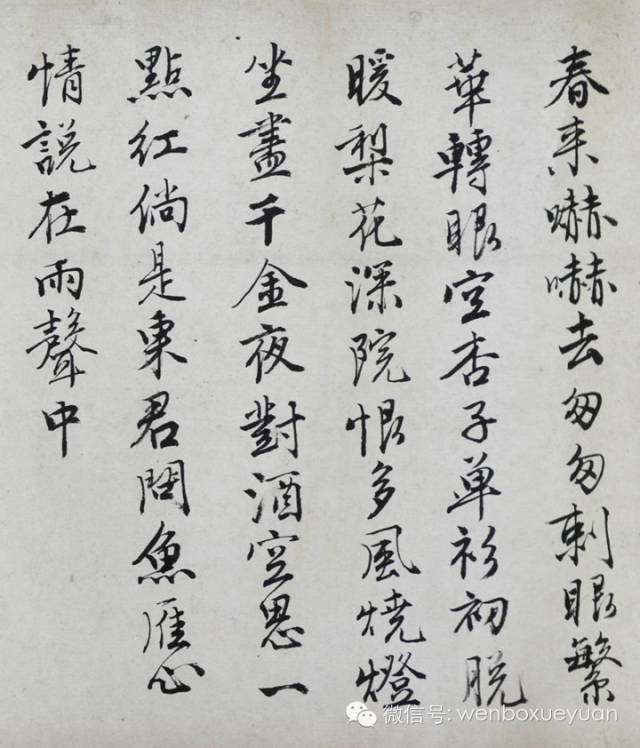 春来嚇嚇去匆匆刺眼繁
華轉眼空杏子单衫初脫
暖梨花深院恨多風燒燈
坐盡千金夜對酒空思一
點紅倘是東君問魚雁心
情說在雨聲中
微信号: wenboxueyuan